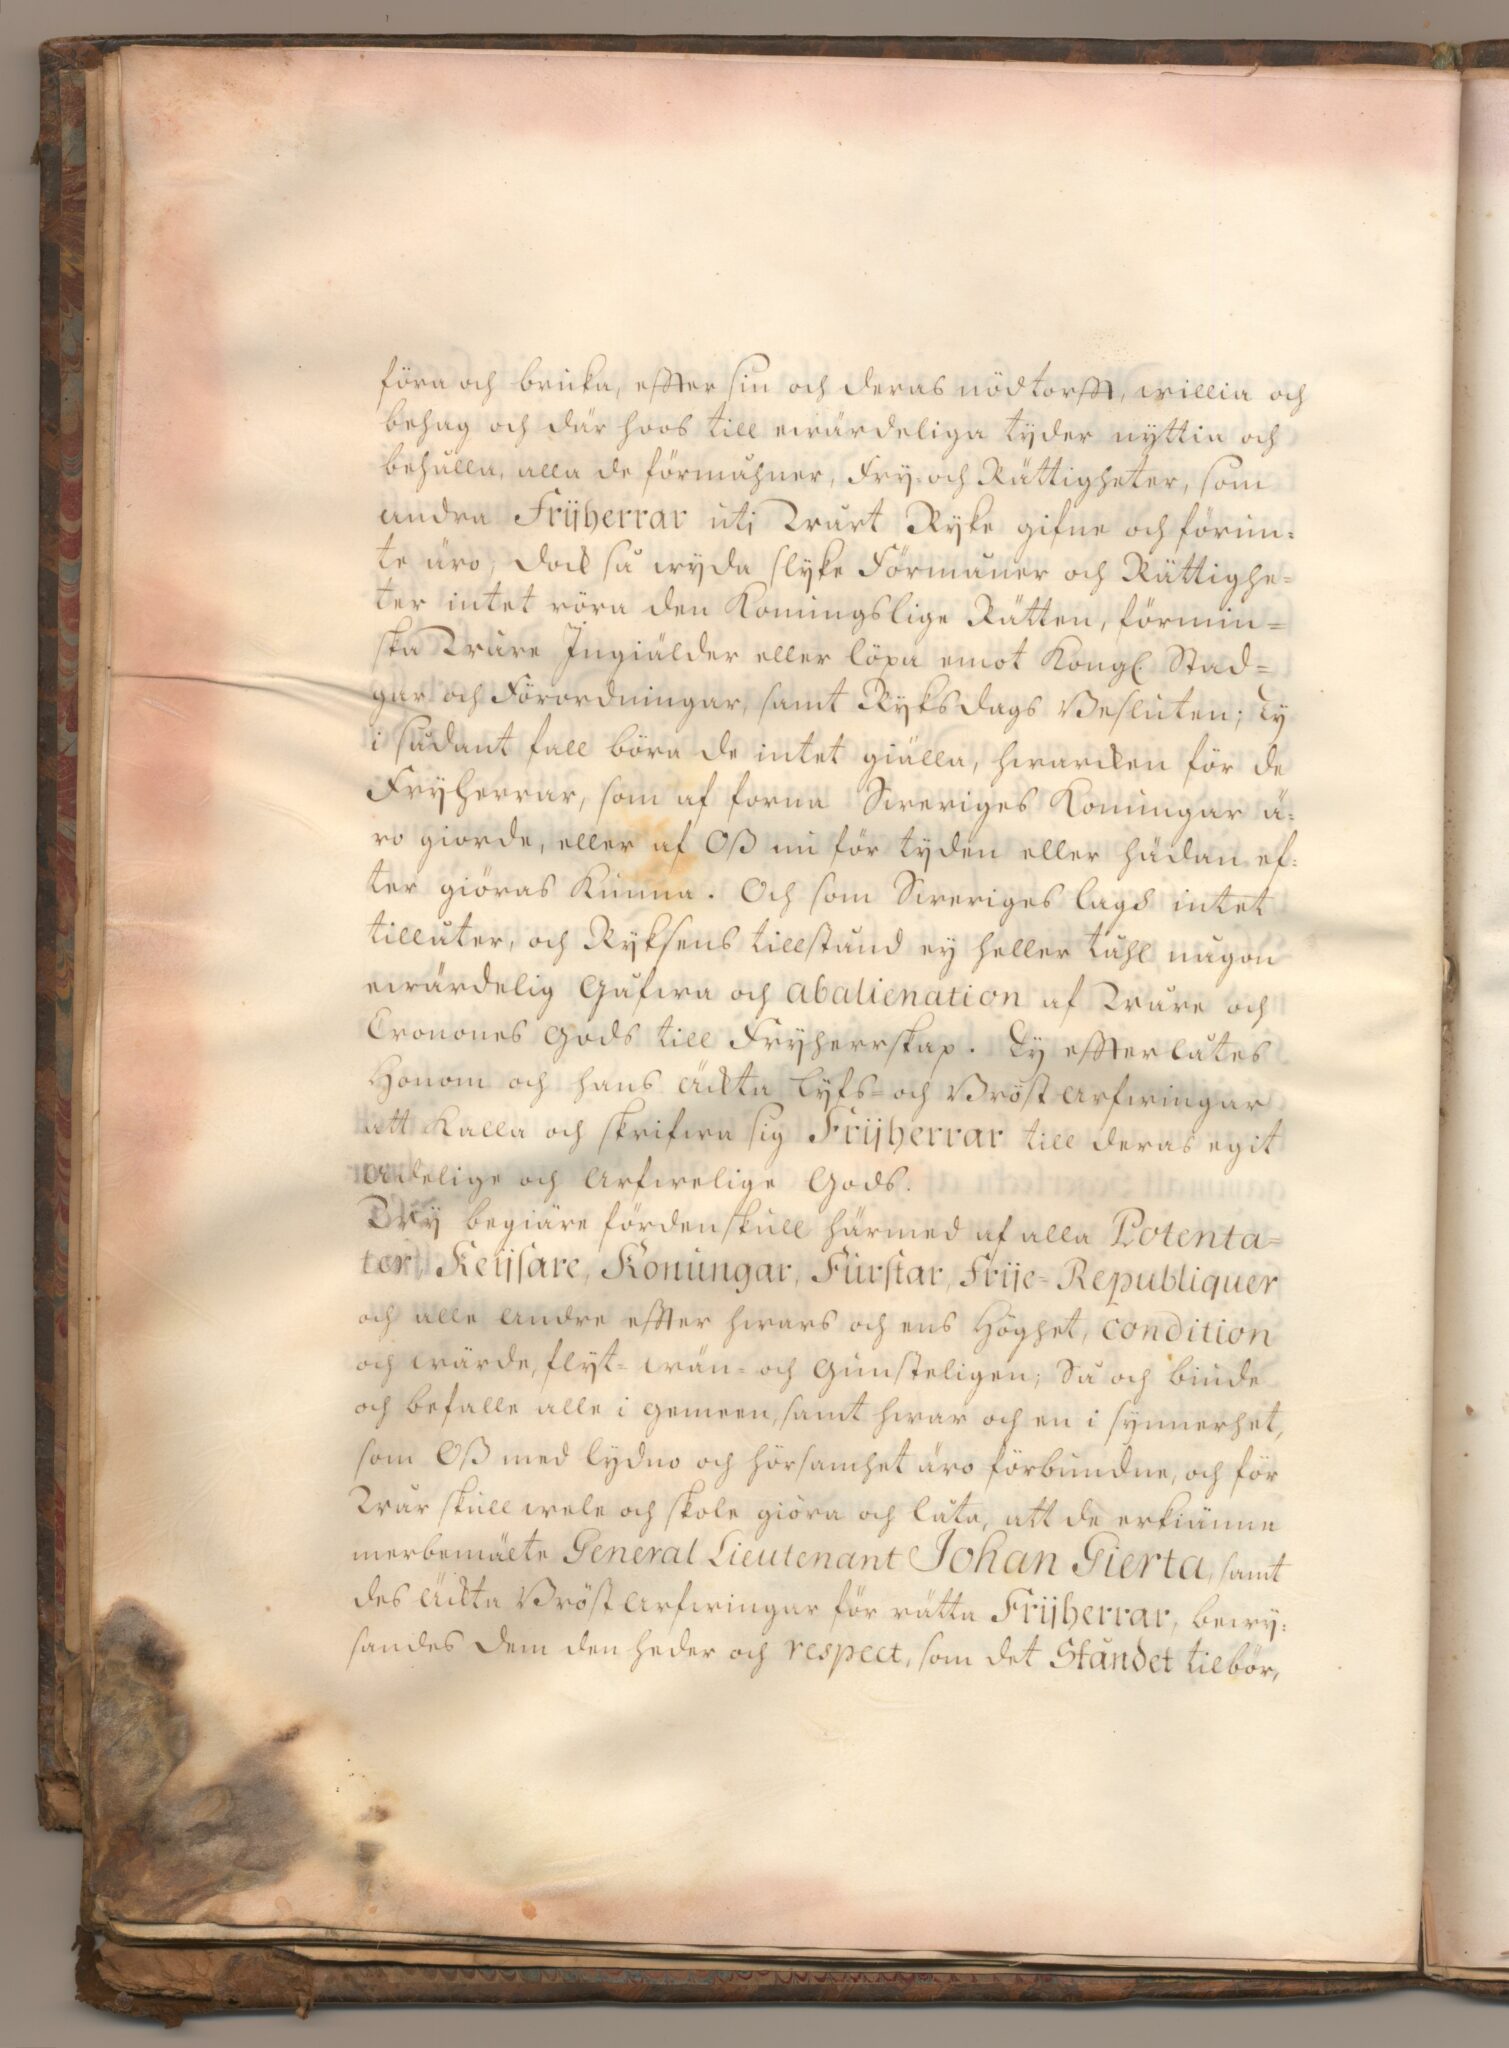 föra och bruka, effter sin och deras nödtorfft, willia och
behag och där hoos till ewärdeliga tyder nyttia och
behålla, alla de förmåhner, Fry- och Rättigheter, som
andra Frijherrar uti Wårt Ryke gifne och förun-
te äro, dock så wyda slyke Förmåner och Rättighe-
ter intet röra den Konungslige Rätten, förmin-
ska Wåre Ingiälder eller löpa emot Kongl. Stad-
gar och Förordningar, samt Ryksdags Besluten; Ty
i sådant fall böra de intet giälla, hwarcken för de
Fryherrar, som af forna Sweriges Konungar ä-
ro giorde, eller af Oß nu för tyden eller hädan ef-
ter giöras kunna. Och som Sweriges lag intet
tillåter, och Ryksens tillstånd ey heller tåhl någon
ewärdelig Gåfwa och abalienation af Wåre och
Cronones Gods till Fryherrskap. Ty effterlåtes
Honom och hans Äckta Lyfs- och Bröst Arfwingar
att kalla och skrifwa sig Frijherrar till deras egit
Adelige och Arfwelige Gods.
Wy begiäre fördenskull härmed af alla Potenta-
ter, Keijsare, Konungar, Fürstar, Frije-Republiquer
och alle Andre effter hwars och ens Höghet, Condition
och wärde, flyt- wän- och Gunsteligen; Så och biude
och befalle alle i gemeen, samt hwar och en i synnerhet,
som Oß med lydno och hörsamhet äro förbundne, och för
Wår skull wele och skole giöra och låta, att de erkiänna
merbemälte General Lieutenant Johan Gierta, samt
des Äckta Bröst Arfwingar för rätta Frijherrar, bewy-
sandes dem den heder och respect, som det Ståndet tilbör,